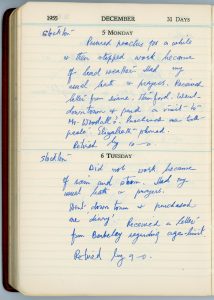 1955 DECEMBER 31 DAYS
5 MONDAY
Stockton
Pruned practice for a while
& then stopped work because
of bad weather. Had my
usual bath & prayers. Received
letter from Irvine, Thinford. Went
downtown & paid a visit to
Mr. Woodall's. Purchased me
Elizabeth phoned.
Retired by 10-0.
6 TUESDAY
Stockton
Did not work because
of rain and storm. Had my
usual bath & prayers.
Went down town & purchased
me Received a letter
from Berkeley regarding age-limit
Retired by 9-0.